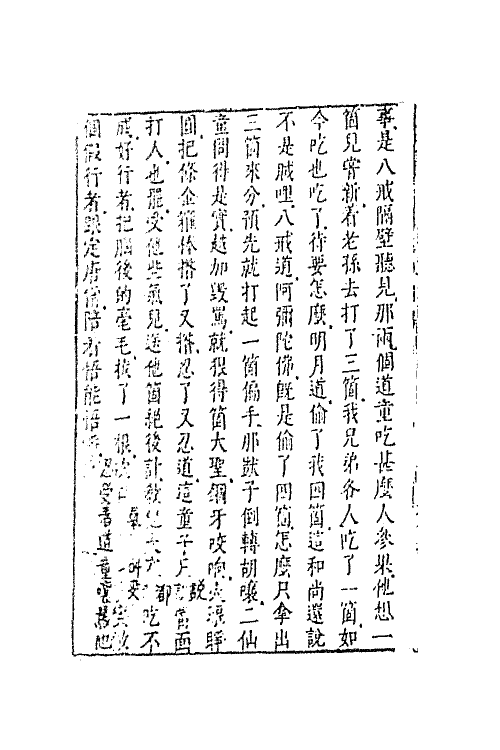 事是八戒隔壁聽見那兩個道童吃甚麼人參果他想一
箇兒嘗新着老孫去打了三箇我兄弟各人吃了一箇如
今吃也吃了待要怎麼明月道偷了我四箇這和尚還說
不是賊哩八戒道阿彌陀佛旣是偷了四箇怎麼只拿出
三箇來分預先就打起一箇偏手那獃子倒轉胡嚷二仙
童問得是實越加毀罵就狠得箇大聖鋼牙咬响火眼睜
圓把條金箍棒揝了又揝忍了又忍道這童子只說當面
打人也罷受他些氣兒送他箇絕後計教他大家都吃不
成好行者把腦後的毫毛拔了一根
個假行者跟定唐僧陪着悟能悟淨忍受着道童嚷罵他